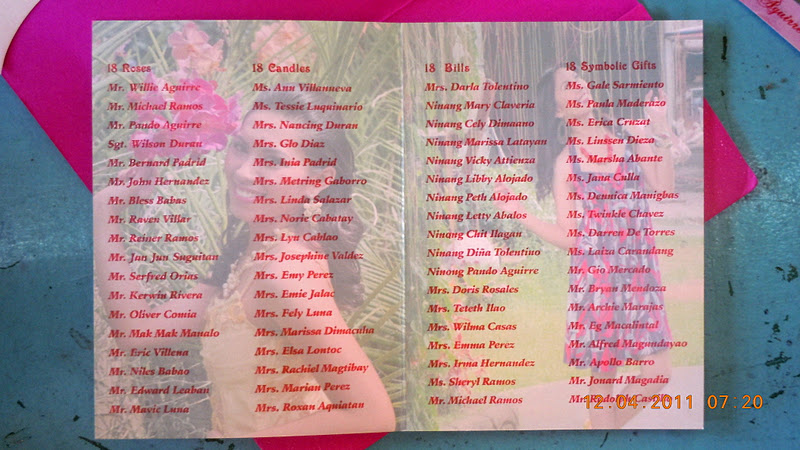 18 Roses
Mr. Willie Aguirre
Mr. Michael Ramos
Mr. Pando Aguirre
Sgt. Wilson Duran
Mr. Bernard Padrid
Mr. John Hernandez
Mr. Bless Babas
Mr. Raven Villar
Mr. Reiner Ramos
Mr. Jun Jun Suguitan
Mr. Serfred Orias
Mr. Kerwin Rivera
Mr. Oliver Comia
Mr. Mak Mak Manalo
Mr. Eric Villena
Mr. Niks Babao
Mr. Edward Leaban
Mr. Mavic Luna
18 Candles
Ms. Ann Villanueva
Ms. Tessie Luquinario
Mrs. Nancing Duran
Mrs. Glo Diaz
Mrs. Inia Padrid
Mrs. Metring Gaborro
Mrs. Linda Salazar
Mrs. Norie Cabatay
Mrs. Lyn Cablao
Mrs. Josephine Valdez
Mrs. Emy Perez
Mrs. Emie Jalac
Mrs. Fely Luna
Mrs. Marissa Dimaculia
Mrs. Elsa Lontoc
Mrs. Rachiel Magtibay
Mrs. Marian Perez
Mrs. Roxan Aquiatan
18 Bills
Mrs. Darla Tolentino
Ninang Mary Claveria
Ninang Cely Dimaano
Ninang Marissa Latayan
Ninang Vicky Attienza
Ninang Libby Alojado
Ninang Peth Alojado
Ninang Letty Abalos
Ninang Chit Ilagan
Ninang Diña Tolentino
Ninong Pando Aguirre
Mrs. Doris Rosales
Mrs. Teteth Ilao
Mrs. Wilma Casas
Mrs. Emma Perez
Mrs. Irma Hernandez
Ms. Sheryl Ramos
Mr. Michael Ramos
18 Symbolic Gifts
Ms. Gale Sarmiento
Ms. Paula Maderazo
Ms. Erica Cruzat
Ms. Linssen Dieza
Ms. Marsha Abante
Ms. Jana Culla
Ms. Dennica Manigbas
Ms. Twinkle Chavez
Ms. Darren De Torres
Ms. Laiza Carandang
Mr. Gio Mercado
Mr. Bryan Mendoza
Mr. Archie Marajas
Mr. Eg Macalintal
Mr. Alfred Magundayao
Mr. Apollo Barro
Mr. Jonard Magadia
Mr. Rodolfo Castillo
12.04.2011 07:20